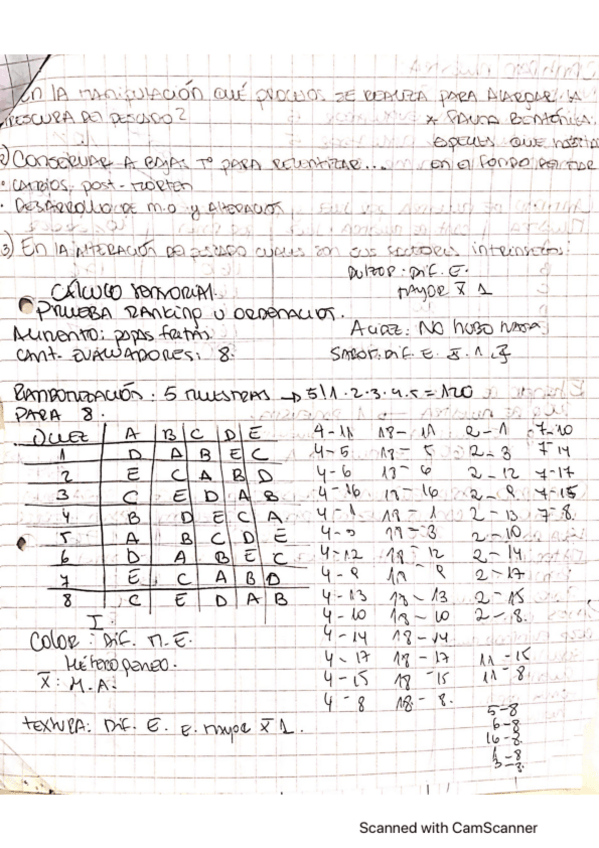 En la manipulación qué procesos se realiza para alargar la
frescura del pescado?
* Fauna bentónica:
especies que habitan
en el fondo del mar
2) Conservar a bajas T° para relentizar...
• cambios post-mortem
• Desarrollo de m.o y alteración
3) En la alteración del pescado cuales son sus factores intrínsecos:
Dulzor: Dif. E.
mayor X̄ 1
CÁLCULO SENSORIAL
• PRUEBA RANKING U ORDENACIÓN.
Alimento: papas fritas
Acidez: No hubo nada
Cant. Evaluadores: 8.
Sabor: Dif. E. X̄. 1.
Randomización. 5 muestras → 5! 1.2.3.4.5 = 120
PARA 8.
Juez A B C D E
1 D A B E C
2 E C A B D
3 C E D A B
4 B D E C A
5 A B C D E
6 D A B E C
7 E C A B D
8 C E D A B
4-11 18-11 2-1 7-10
4-5 18-5 2-3 7-14
4-6 18-6 2-12 7-17
4-16 18-16 2-9 7-15
4-1 18-1 2-13 7-8
4-3 18-3 2-10
4-12 18-12 2-14
4-9 18-9 2-17
4-13 18-13 2-15
4-10 18-10 2-8.
4-14 18-14
4-17 18-17 11-15
4-15 18-15 11-8
4-8 18-8.
5-8
6-8
16-8
1-8
3-8
I
Color: Dif. M.E.
Héterogeneo.
X̄: M.A.
Textura: Dif. E. E. mayor X̄ 1.
Scanned with CamScanner